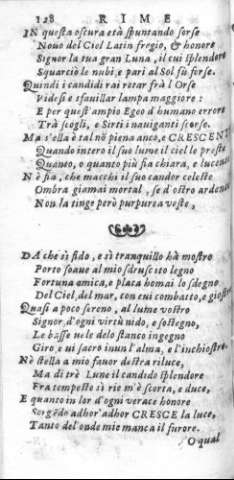 128 RIME
IN questa oscura età spuntando sorse
Nouo del Ciel Latin fregio, & honore
Signor la tua gran Luna, il cui splendore
Squarciò le nubi, e pari al Sol fù sirse.
Quindi i candidi rai rotar frà l'Orse
Videsi e sfauillar lampa maggiore:
E per quest'ampio Egeo d'humano errore
Trà scogli, e Sirti i nauiganti scorse.
Ma s'ella è tal nõ piena anco, e CRESCENT
Quando intero il suo lume il ciel le presti
Quanto, o quanto più fia chiara, e lucente
Nè fia, che macchi il suo candor celeste
Ombra giamai mortal, se d'ostro ardente
Non la tinge però purpurea veste,
DA che sì fido, e sì tranquillo hà mostro
Porto soaue al mio sdruscito legno
Fortuna amica, e placa homai lo sdegno
Del Ciel, del mar, con cui combatto, e giostro
Quasi a poco sereno, al lume vostro
Signor, d'ogni virtù nido, e sostegno,
Le basse vele delo stanco ingegno
Giro, e vi sacro inun l'alma, e l'inchiostro.
Nè stella a mio fauor dextra riluce,
Ma di trè Lune il candido splendore
Fra tempeste sì rie m'è scorta, e duce,
E quanto in lor d'ogni verace honore
Sorgẽdo adhor'adhor CRESCE la luce,
Tanto del'onde mie manca il furore.
O qual